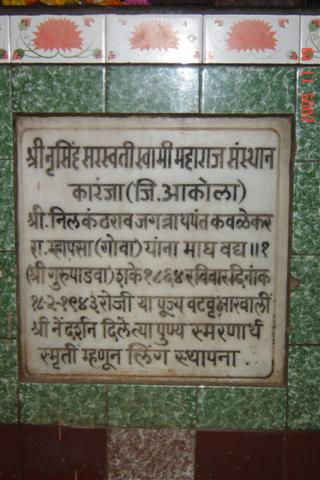 श्री नृसिंह सरस्वती स्वामी महाराज संस्थान
कारंजा (जि. आकोला)
श्री. निलकंठराव जगन्नाथपंत कवळेकर
रा. म्हापसा (गोवा) यांना माघ वद्य ॥१
(श्री गुरुपाडवा) शके १८६४ रविवार दिनांक
१८-२-१९४३ रोजी या पूज्य वटवृक्षाखालीं
श्री नें दर्शन दिलेत्या पुण्य स्मरणार्थ
स्मृती म्हणून लिंग स्थापना .